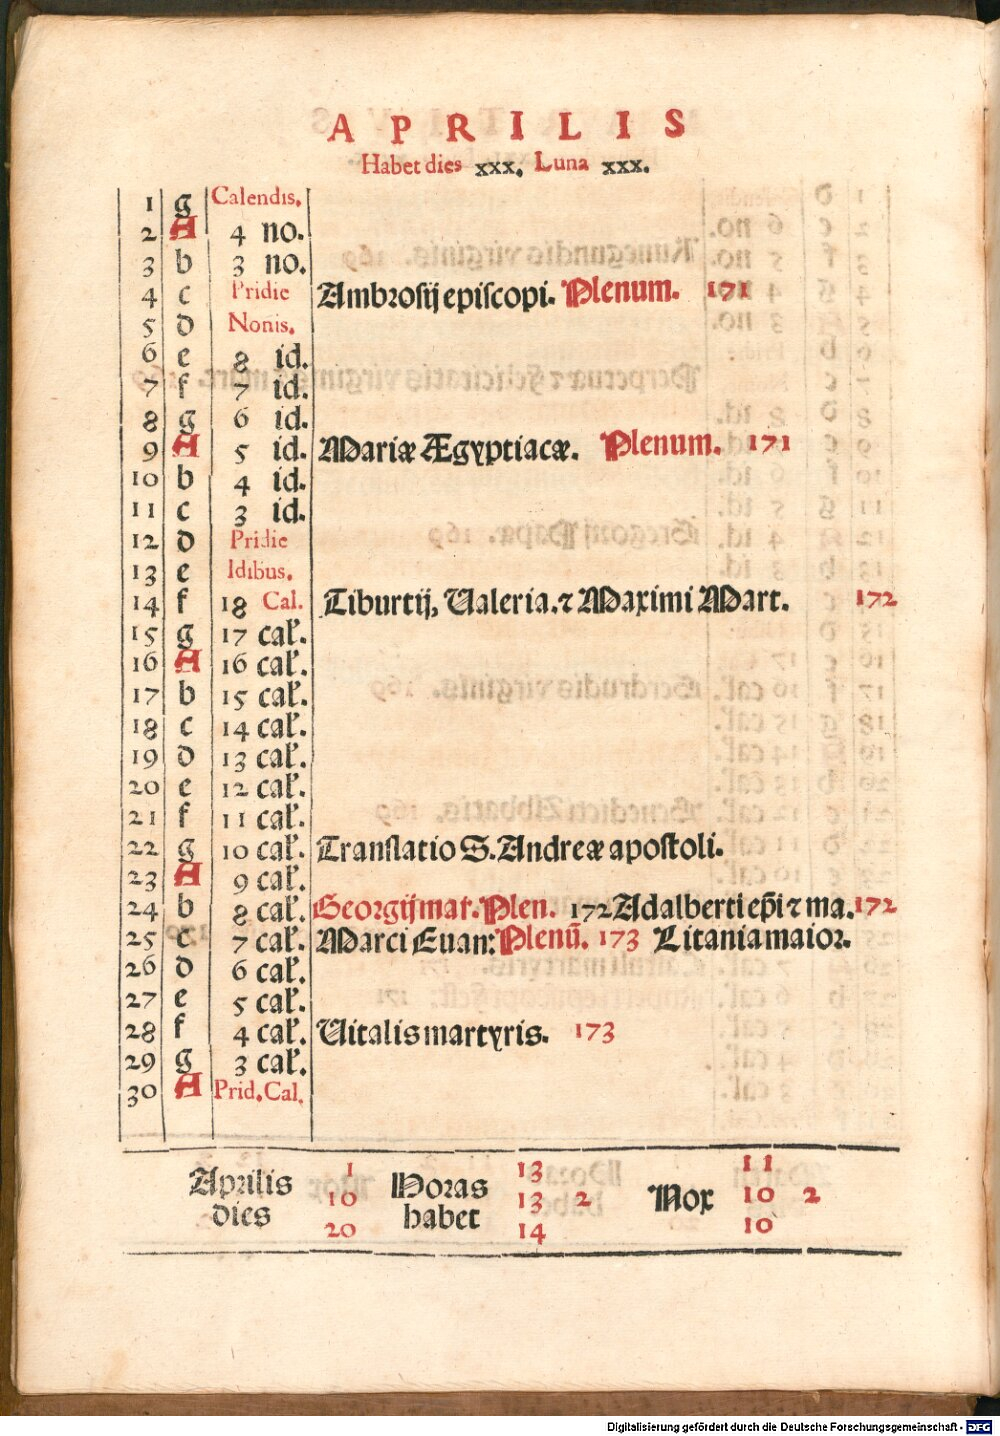 APRILIS
Habet dies xxx. Luna xxx.
1 g Calendis.
2 A 4 no.
3 b 3 no.
4 c Pridie Ambrosij episcopi. Plenum. 171
5 d Nonis.
6 e 8 id.
7 f 7 id.
8 g 6 id.
9 A 5 id. Mariæ Ægyptiacæ. Plenum. 171
10 b 4 id.
11 c 3 id.
12 d Pridie
13 e Idibus.
14 f 18 Cal. Tiburtij, Valeria. ⁊ Maximi Mart. 172
15 g 17 cal.
16 A 16 cal.
17 b 15 cal.
18 c 14 cal.
19 d 13 cal.
20 e 12 cal.
21 f 11 cal.
22 g 10 cal. Translatio S. Andreæ apostoli.
23 A 9 cal.
24 b 8 cal. Georgij mar. Plen. 172 Adalberti ep̄i ⁊ ma. 172
25 c 7 cal. Marci Euan: Plenū. 173 Litania maior.
26 d 6 cal.
27 e 5 cal.
28 f 4 cal. Vitalis martyris. 173
29 g 3 cal.
30 A Prid. Cal.
Aprilis dies 1 Horas habet 13 Nox 11
10 13 2 10 2
20 14 10
Digitalisierung gefördert durch die Deutsche Forschungsgemeinschaft - DFG